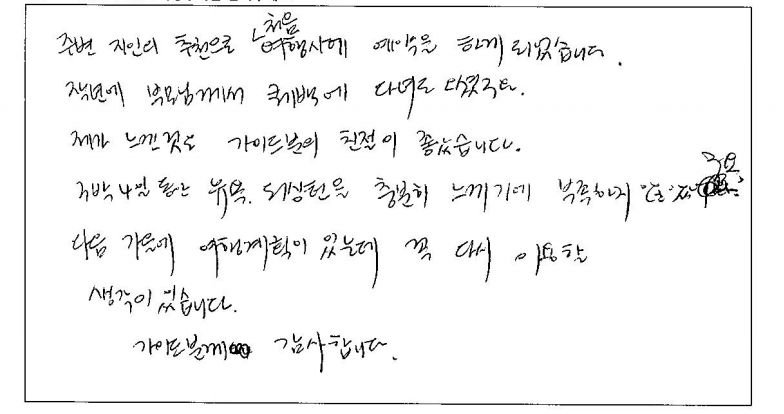 주변 지인의 추천으로 처음 여행사에 예약을 하게 되었습니다.
작년에 부모님께서 퀘백에 다녀도 오셨구요.
제가 느낀것도 가이드분의 친절이 좋았습니다.
3박 4일 동안 뉴욕, 워싱턴을 충분히 느끼기에 부족하지 않은
다음 가을에 여행계획이 있는데 꼭 다시 이용할
생각이 있습니다.
가이드분께 감사합니다.